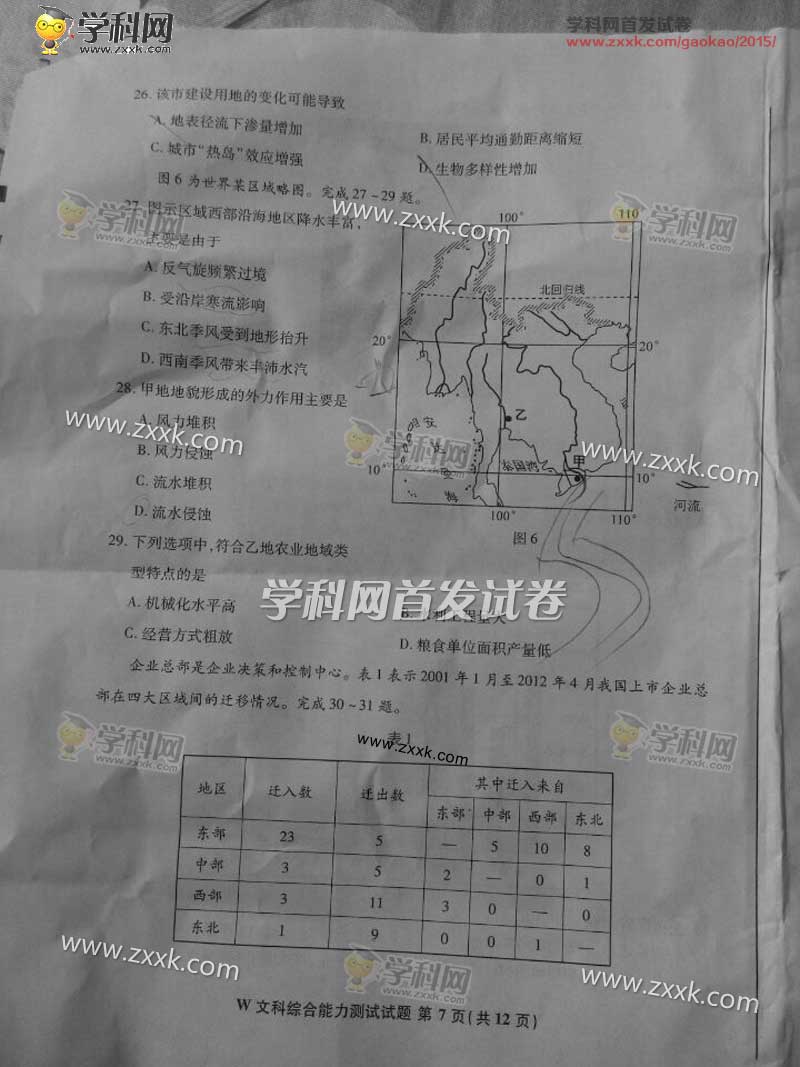 学科网
www.zxxk.com
学科网首发试卷
www.zxxk.com/gaokao/2015/
26. 该市建设用地的变化可能导致
A. 地表径流下渗量增加
B. 居民平均通勤距离缩短
C. 城市“热岛”效应增强
D. 生物多样性增加
图6为世界某区域略图。完成27~29题。
27. 图示区域西部沿海地区降水丰富，
主要是由于
A. 反气旋频繁过境
B. 受沿岸寒流影响
C. 东北季风受到地形抬升
D. 西南季风带来丰沛水汽
28. 甲地地貌形成的外力作用主要是
A. 风力堆积
B. 风力侵蚀
C. 流水堆积
D. 流水侵蚀
100°
110
北回归线
20°
20°
乙
安
泰国湾
甲
海
10°
10°
100°
110°
河流
图6
29. 下列选项中，符合乙地农业地域类
型特点的是
A. 机械化水平高
C. 经营方式粗放
D. 粮食单位面积产量低
学科网首发试卷
企业总部是企业决策和控制中心。表1表示2001年1月至2012年4月我国上市企业总
部在四大区域间的迁移情况。完成30~31题。
表1
地区 迁入数 迁出数 其中迁入来自
东部 中部 西部 东北
东部 23 5 — 5 10 8
中部 3 5 2 — 0 1
西部 3 11 3 0 — 0
东北 1 9 0 0 1 —
W 文科综合能力测试试题 第7页(共12页)